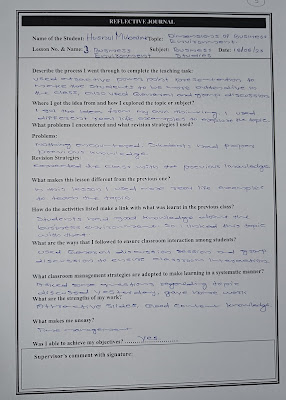 REFLECTIVE JOURNAL
Name of the Student: Husna M Topic: Dimensions of Business
Environment
Lesson No. & Name: 3 Business Subject: Business Date:
Environment Studies
Describe the process I went through to complete the teaching task:
Used attractive power point presentation to
make the students to be more attentive in
the class, also used Classroom and group discussion
Where I got the idea from and how I explored the topic or subject?
I got the idea from my own thinking. I used
different real life examples to explore the topic
What problems I encountered and what revision strategies I used?
Problems:
Nothing encountered. Students had proper
previous knowledge
Revision Strategies:
Connected the class with the previous knowledge
What makes this lesson different from the previous one?
In this lesson I used more real life examples
to teach the topic
How do the activities listed make a link with what was learnt in the previous class?
Students had good knowledge about the
business environment. So I linked this topic
with these
What are the ways that I followed to ensure classroom interaction among students?
Used classroom discussion session and group
discussion to ensure classroom interaction
What classroom management strategies are adapted to make learning in a systematic manner?
Asked some questions regarding topic
discussed yesterday, gave home work
What are the strengths of my work?
Attractive slides, Good content knowledge
What makes me uneasy?
Time management
Was I able to achieve my objectives? Yes
Supervisor's comment with signature: